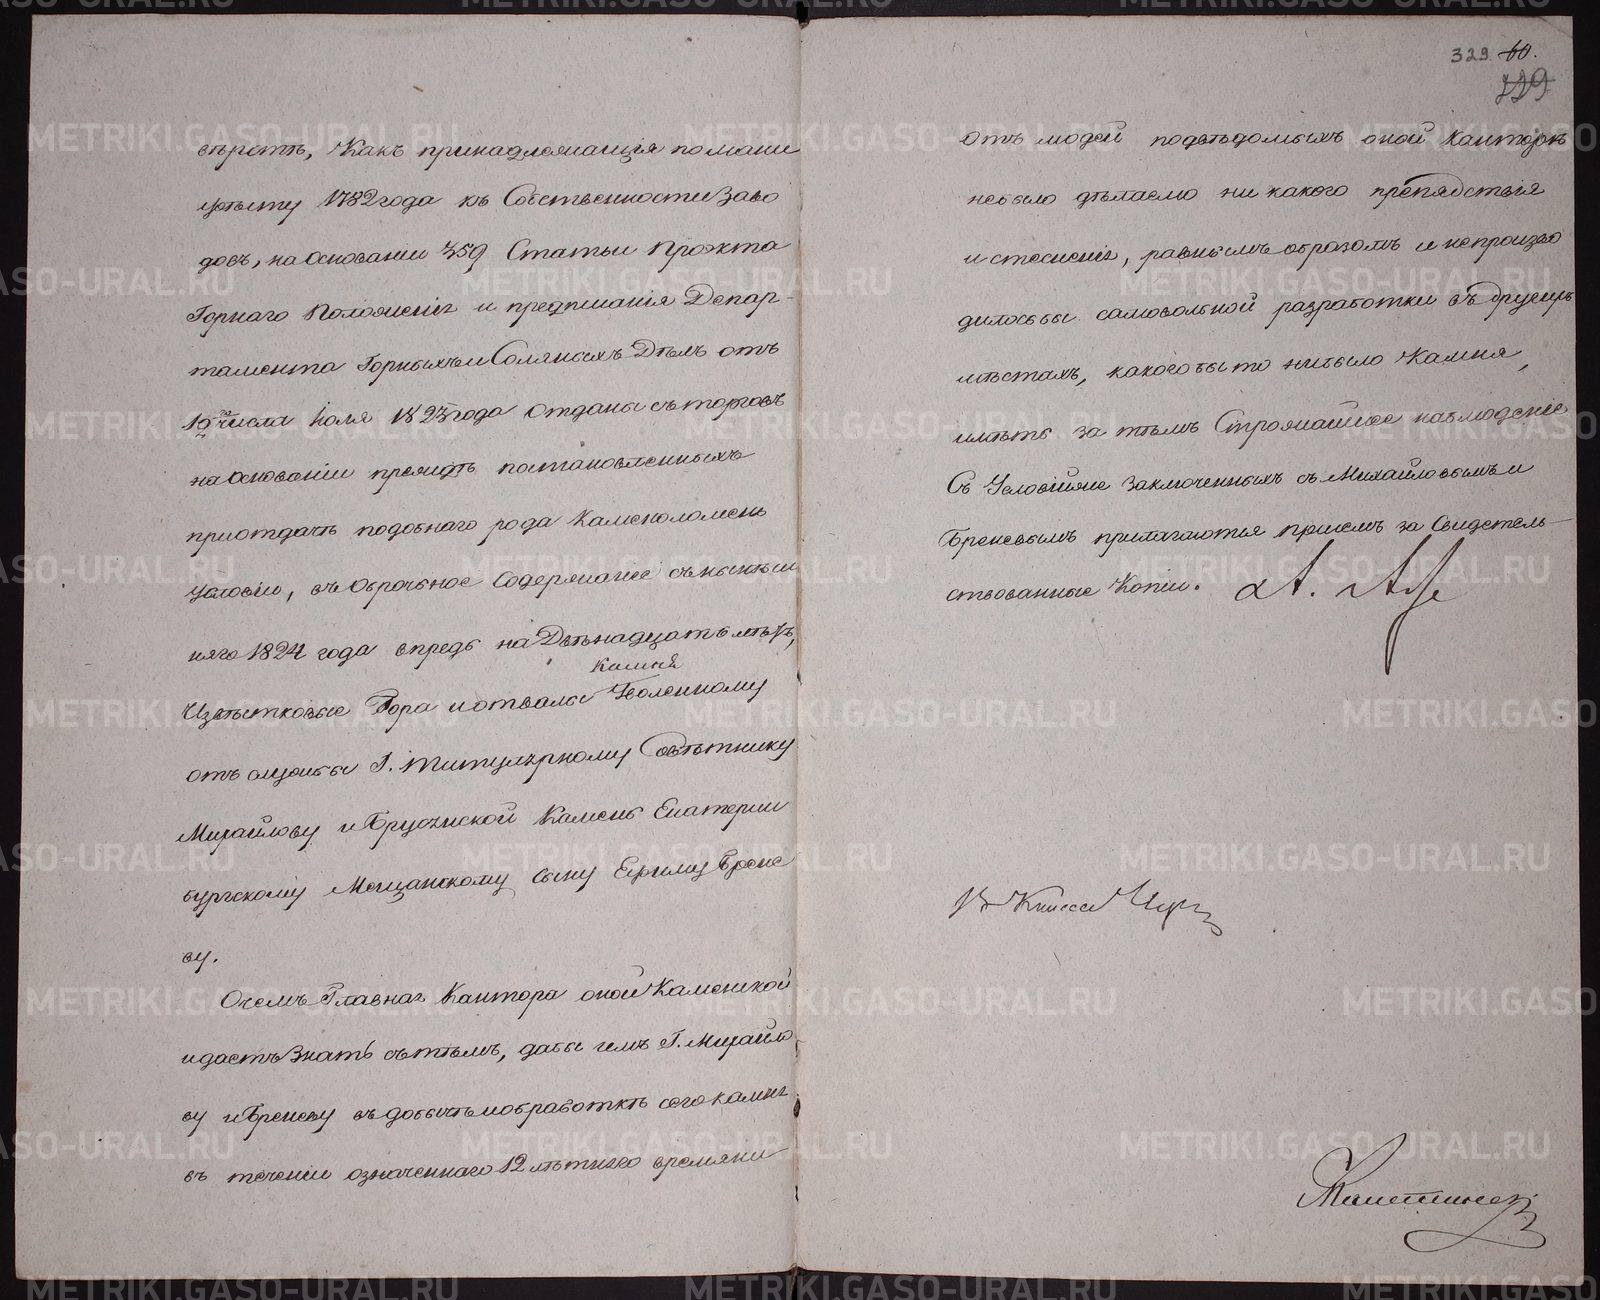 верстѣ, Какъ принадлежащія по мани
фѣсту 1782 года къ Собственности Заво
довъ, на основаніи 359 Статьи Проэкта
Горнаго Положенія и предписанія Депар-
тамента Горныхъ и Соляныхъ Дѣлъ отъ
19го числа Іюля 1823 года отданы съ торговъ
на основаніи прежде постановленныхъ
при отдачѣ подобнаго рода Каменоломень
условіи, въ Оброчьное Содержаніе съ нынѣш
няго 1824 года впредь на Двѣнадцать лѣтъ,
Камня
Извѣстковые Гора и отвалы Уволенному
отъ службы Г. Титулярному Совѣтнику
Михайлову и Брусянской Камень Екатерин
бургскому Мещанскому сыну Ефиму Брене
ву.
О чемъ Главная Кантора оной Каменской
и дастъ Знать съ тѣмъ, дабы чемъ Г. Михайло
ву и Бреневу въ добычѣ и обработкѣ сего камня
въ теченіи означеннаго 12 лѣтняго времяни
329 60.
729
отъ людей подвѣдомыхъ оной Канторѣ
небыло дѣлаемо ни какого препядствія
и стесненія, равнымъ образомъ и непроизво
дилосьбы самовольной разработки въ другихъ
мѣстахъ, какого бы то нибыло Камня,
имѣть за тѣмъ Строжайшее наблюденіе
Съ Условій же Заключенныхъ съ Михайловымъ и
Бреневымъ прилагаются присемъ за Свидетель-
ствованные Копіи.